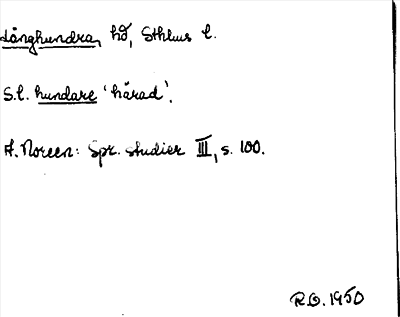 Långhundra, hd, Sthlms l.
S.l. hundare 'härad'.
A. Noreen: Spr. studier III, s. 100.
R.O. 1950